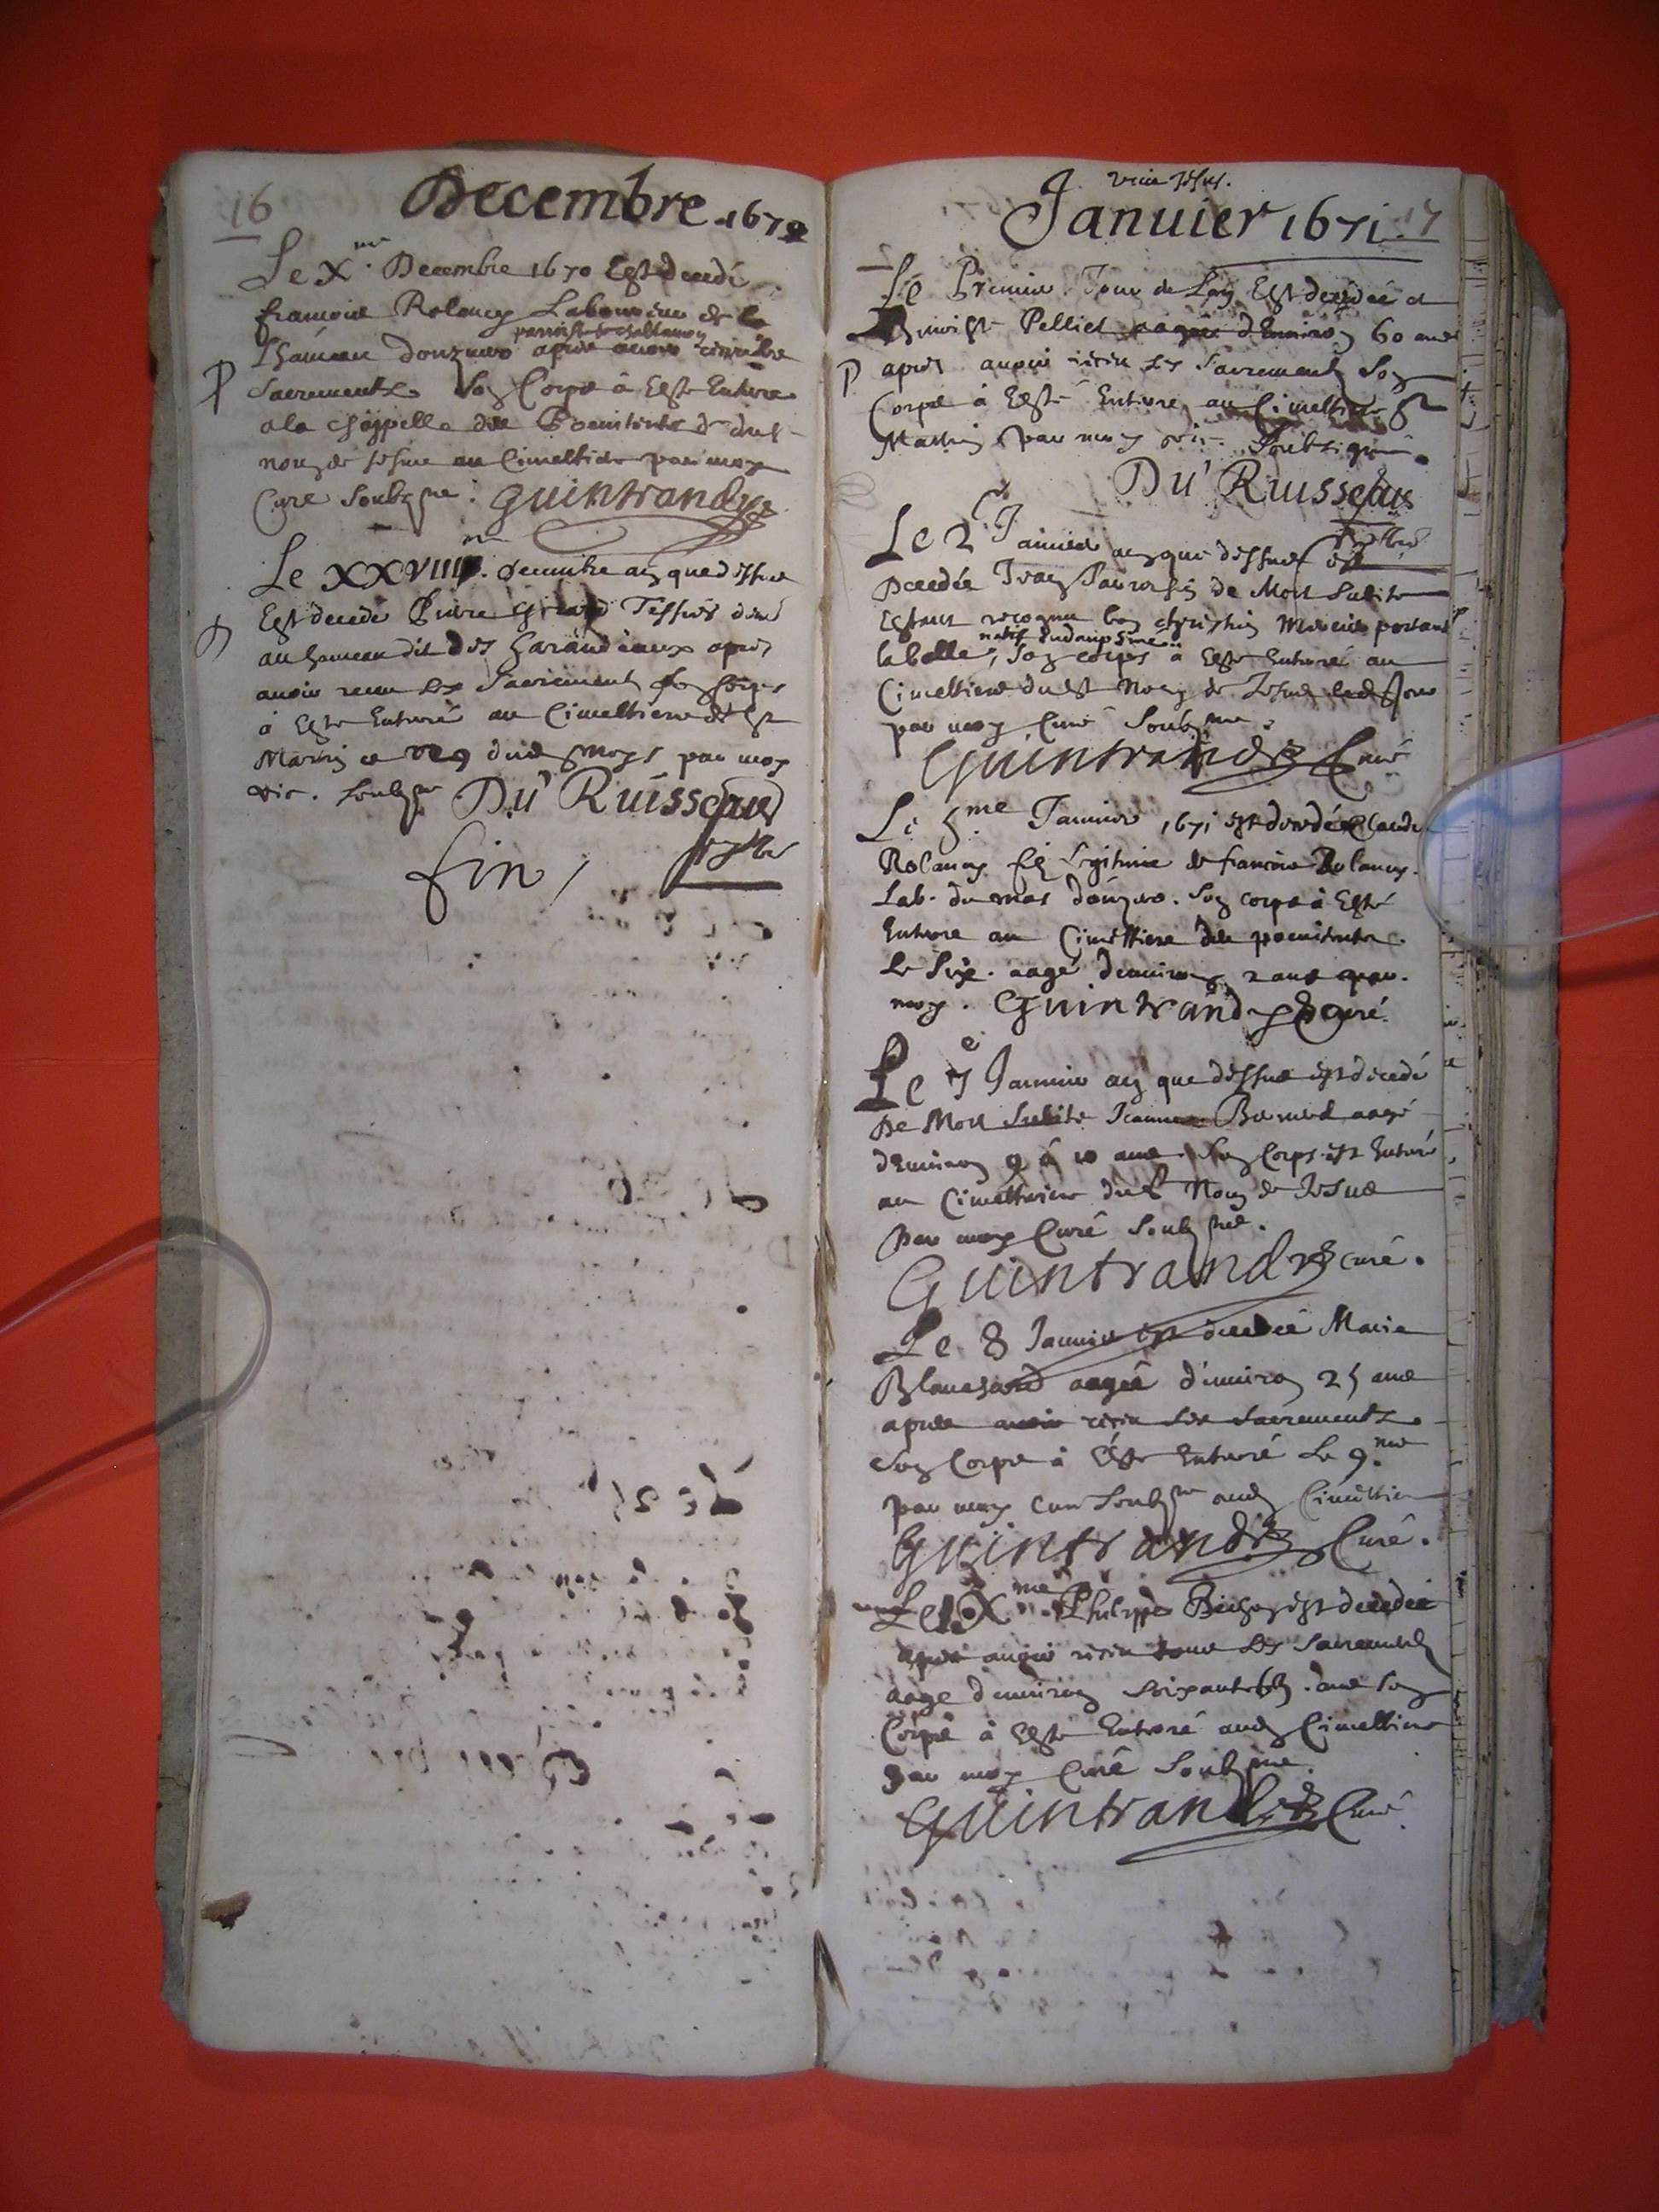 16
Decembre 1670
Le X.me Decembre 1670 Est decedé
francois Rolancy Laboureur de la
parroisse de
Lhameau donzuro apres avoir receu les
Sacrements. Son Corps à Esté Enterre
a la chappelle des Poenitents du
nom de Jesus au Cimeltiere par moy
Cure Soubzne. Guintrandy
Le XXVIIII. decembre an que dessus
Est decede Pierre Girard Tessier
au hameau dit des apres
avoir receu les Sacrement son Corps
à Este Enterré au Cimeltiere de St
Martin ce 29 dud moys par moy
vic. soubzne Du Ruisseau
fin / ptbre
vive Jesus.
Januier 1671. 17
Le Premier Jour de Lan Est decedée
Pelliet aagée d'Environ 60 ans
apres avoir receu les Sacrements Son
Corps à Esté Enterré au Cimeltiere St
Martin par moy vic. Soubzsigné.
Du Ruisseau
ptbre
Le 2e Januier an que dessus est
Decedée Jean de Mort Subite
Estant recognu bon chrestien Mercier portant
natif
la balle, Son corps à Este Enterré au
Cimeltiere du St Nom de Jesus led Jour
par moy Curé Soubzne.
Guintrandy Curé
Le 5me Januier 1671 est decedé Claude
Rolancy fils legitime de francois Rolancy.
Lab. du mas donzuro. Son corps à Esté
Enterre au Cimeltiere des poenitents.
Le Sixe. aagé denviron 2 ans par.
moy. Guintrandy Curé.
Le 7e Januier an que dessus est decedé
De Mort Subite Jeanne Bernard aagé
dEnviron 9 à 10 ans. Son Corps est Enterré
au Cimeltiere du St Nom de Jesus
Par moy Curé Soubzne.
Guintrandy curé.
Le 8 Januier est decedée Marie
Blanchard aagée denviron 25 ans
apres avoir receu les Sacrements.
Son Corps à Esté Enterré Le 9.me
par moy Cure Soubzne aud Cimeltiere
Guintrandy Curé.
Le IX.me Philippe est decedée
apres avoir receu tous les Sacrements
aage denviron Soixante ans Son
Corps à Esté Enterré aud Cimeltiere
par moy Curé Soubzne.
Guintrandy Curé